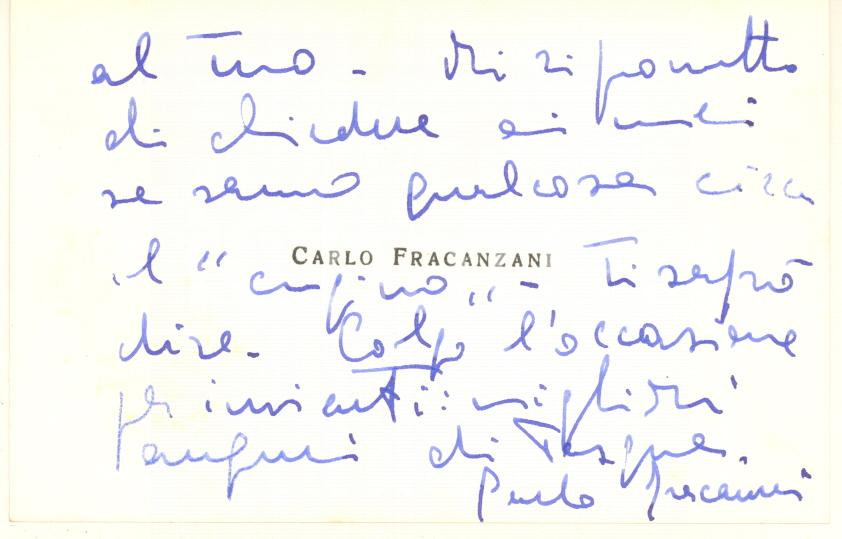 al tuo - Mi riprometto
di chiedere ai miei
se sanno qualcosa circa
CARLO FRACANZANI
il "cugino" - Ti saprò
dire. Colgo l'occasione
per inviarti i migliori
auguri di Pasqua.
Fracanzani